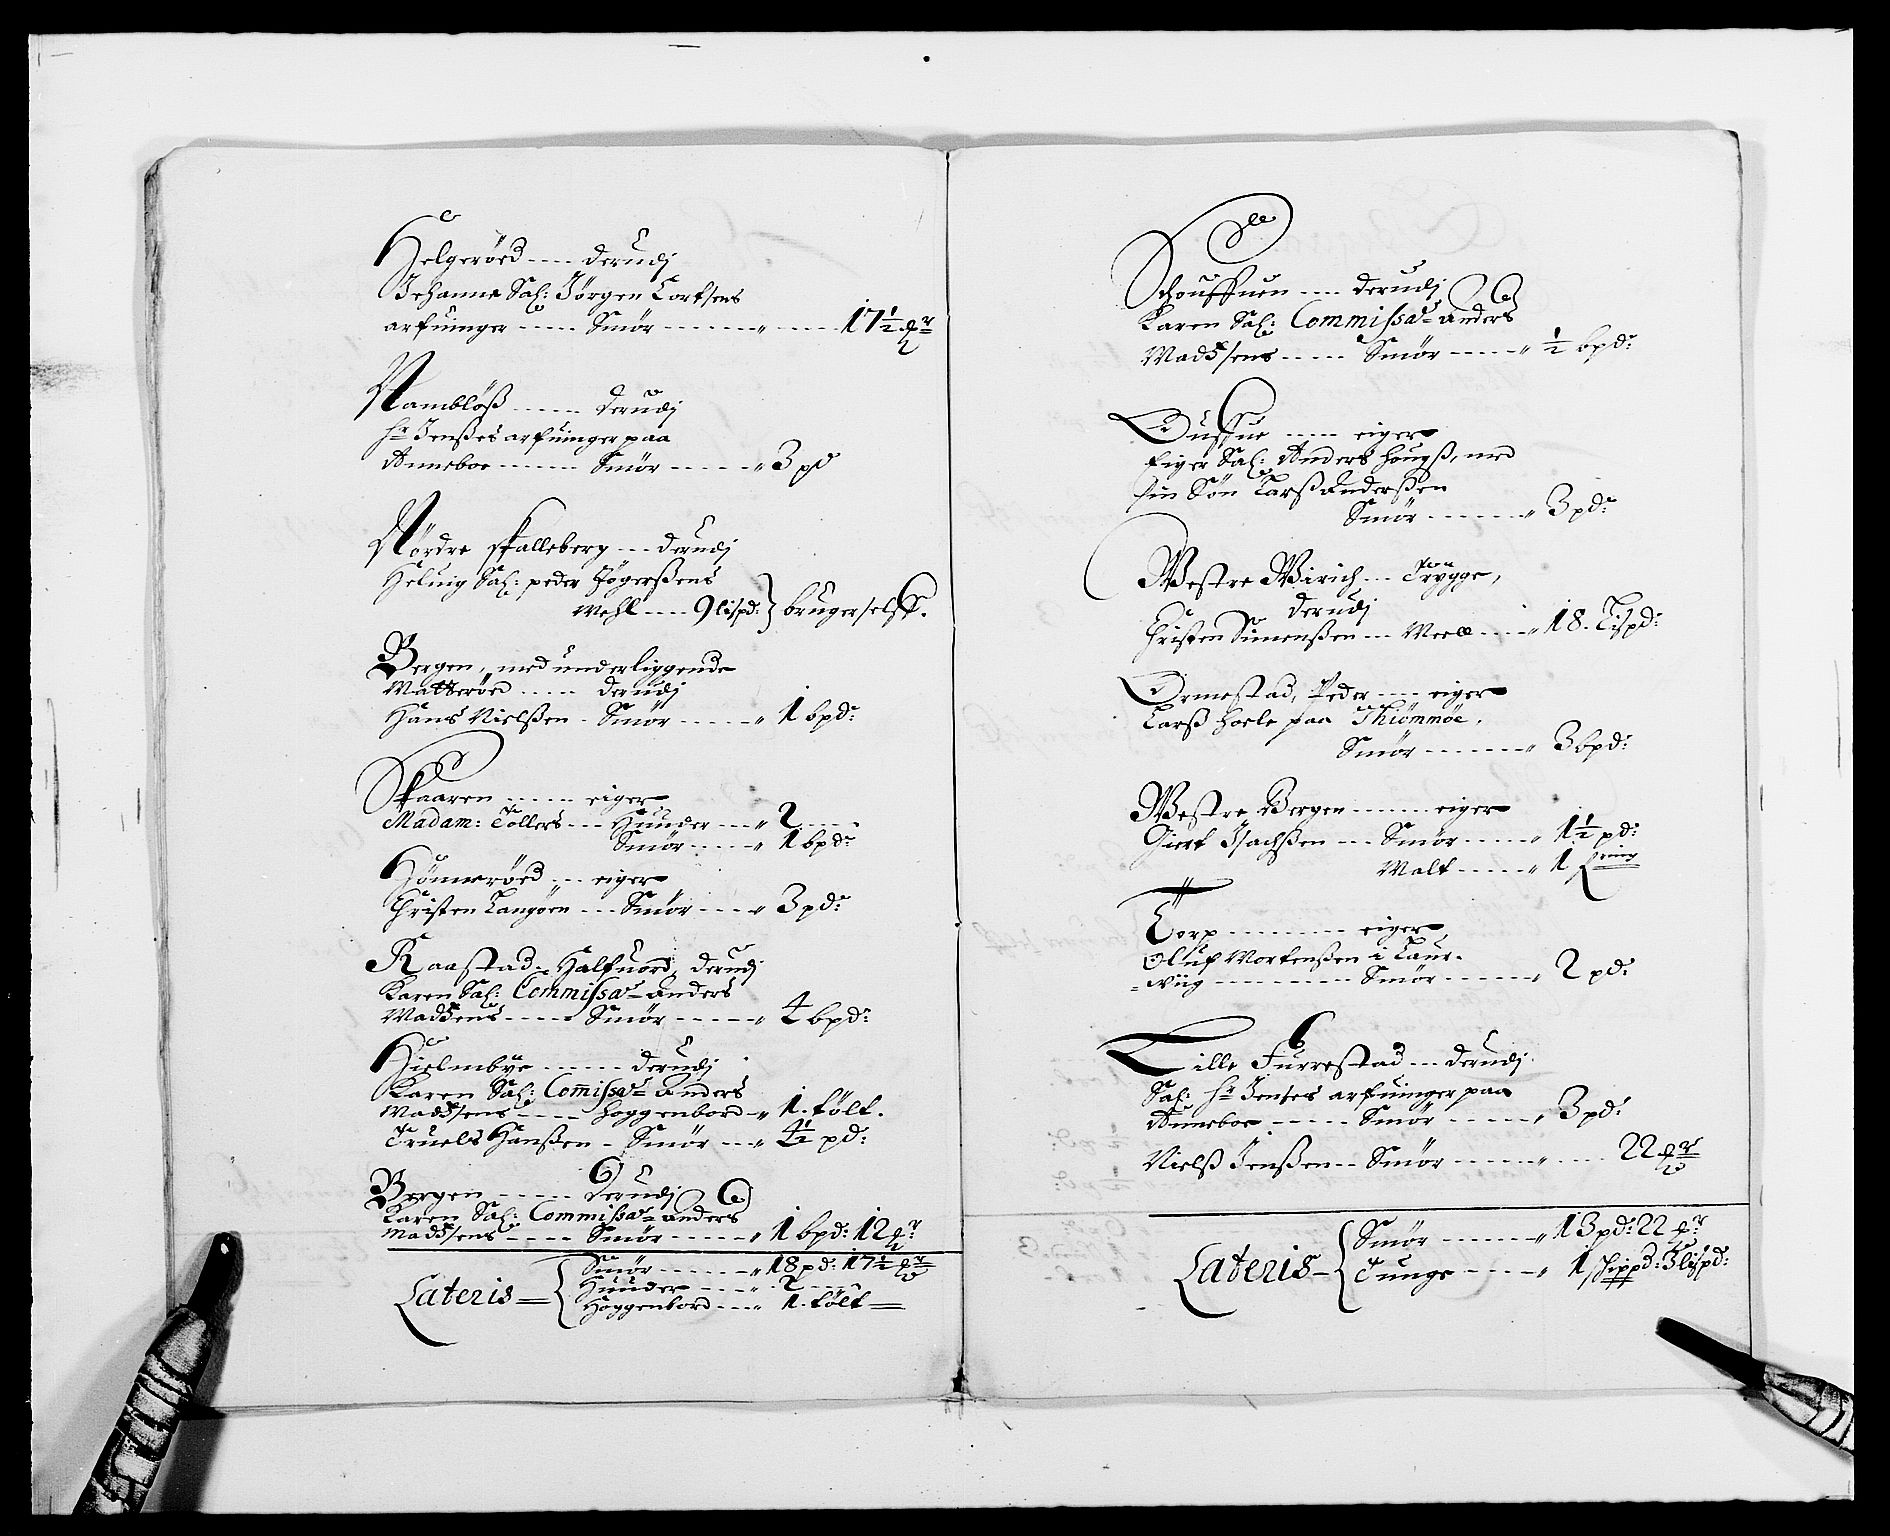 Helgeröed ---- derudj
Jehanne Sal: Jörgen Cortsens
arfuinger ----- Smör -------- " ----- 17½ ℔r
Namblöß ------ derudj
hr Jenßes arfuinger paa
Anneboe ------- Smör ------ " 3 pd
Nördre skalleberg --- derudj
Heluig Sal: peder Jögerßens
Mehl ---- 9 lispd: } bruger self.
Bergen, med underliggende
Matteröed ----- derudj
Hans Nielßen - Smör ----- " 1 bpd:
Skaaren ----- eiger
Madam: Tollers --- Huuder --- " 2 ----
Smör ----- " 1 bpd:
Hönneröed --- eiger
Christen Langöen --- Smör ---- " 3 pd:
Raastad - Halfuord, derudj
Karen Sal: Commissar anders
Madsens ----- Smör ----- " 4 bpd:
Hielmbye ------ derudj
Karen Sal: Comissar anders
Madsens ---- hoggenbord - " 1. tölt.
Truels Hanßen - Smör --- " 4½ pd:
Bergen ------ derudj
Karen Sal: Commissar anders
Madsens ----- Smör ----- " 1 bpd: 12 ℔r
Lateris = { Smör ------ " 18 pd: 17½ ℔r
Huuder ---- " 2 ----
Hoggenbord --- " 1. tölt =
Schouffuen ---- derudj
Karen Sal: Commissar anders
Madsens ----- Smör ----- " ½ bpd:
Dussue ---- eiger
Eiger Sal: Anders hougß, med
sin Sön Larß anderßen
Smör ------- " 3 pd:
Westre Wirich --- Trygge,
derudj
Christen Simenßen --- Meell ---- " 18. Lispd:
Ormestad, Peder ---- eiger
Larß hoele paa Thiömmöe.
Smör ------- " 3 bpd:
Westre Bergen ------- eiger
Giert Isachßen --- Smör ----- " 1½ pd:
Malt ----- " 1
Torp --------- eiger
Oluf Mortenßen i Laur-
-wiig --------- Smör ------- " 2 pd:
Lille Furrestad --- derudj
Sal: hr Jenses arfuinger paa
Anneboe ------ Smör ------ " 3 pd:
Nielß Jenßen -- Smör ------ " ---- 22 ℔r
Lateris - { Smör ------- " 13 pd: 22 ℔r
Tunge ----- " 1 skippd: 3 lispd: